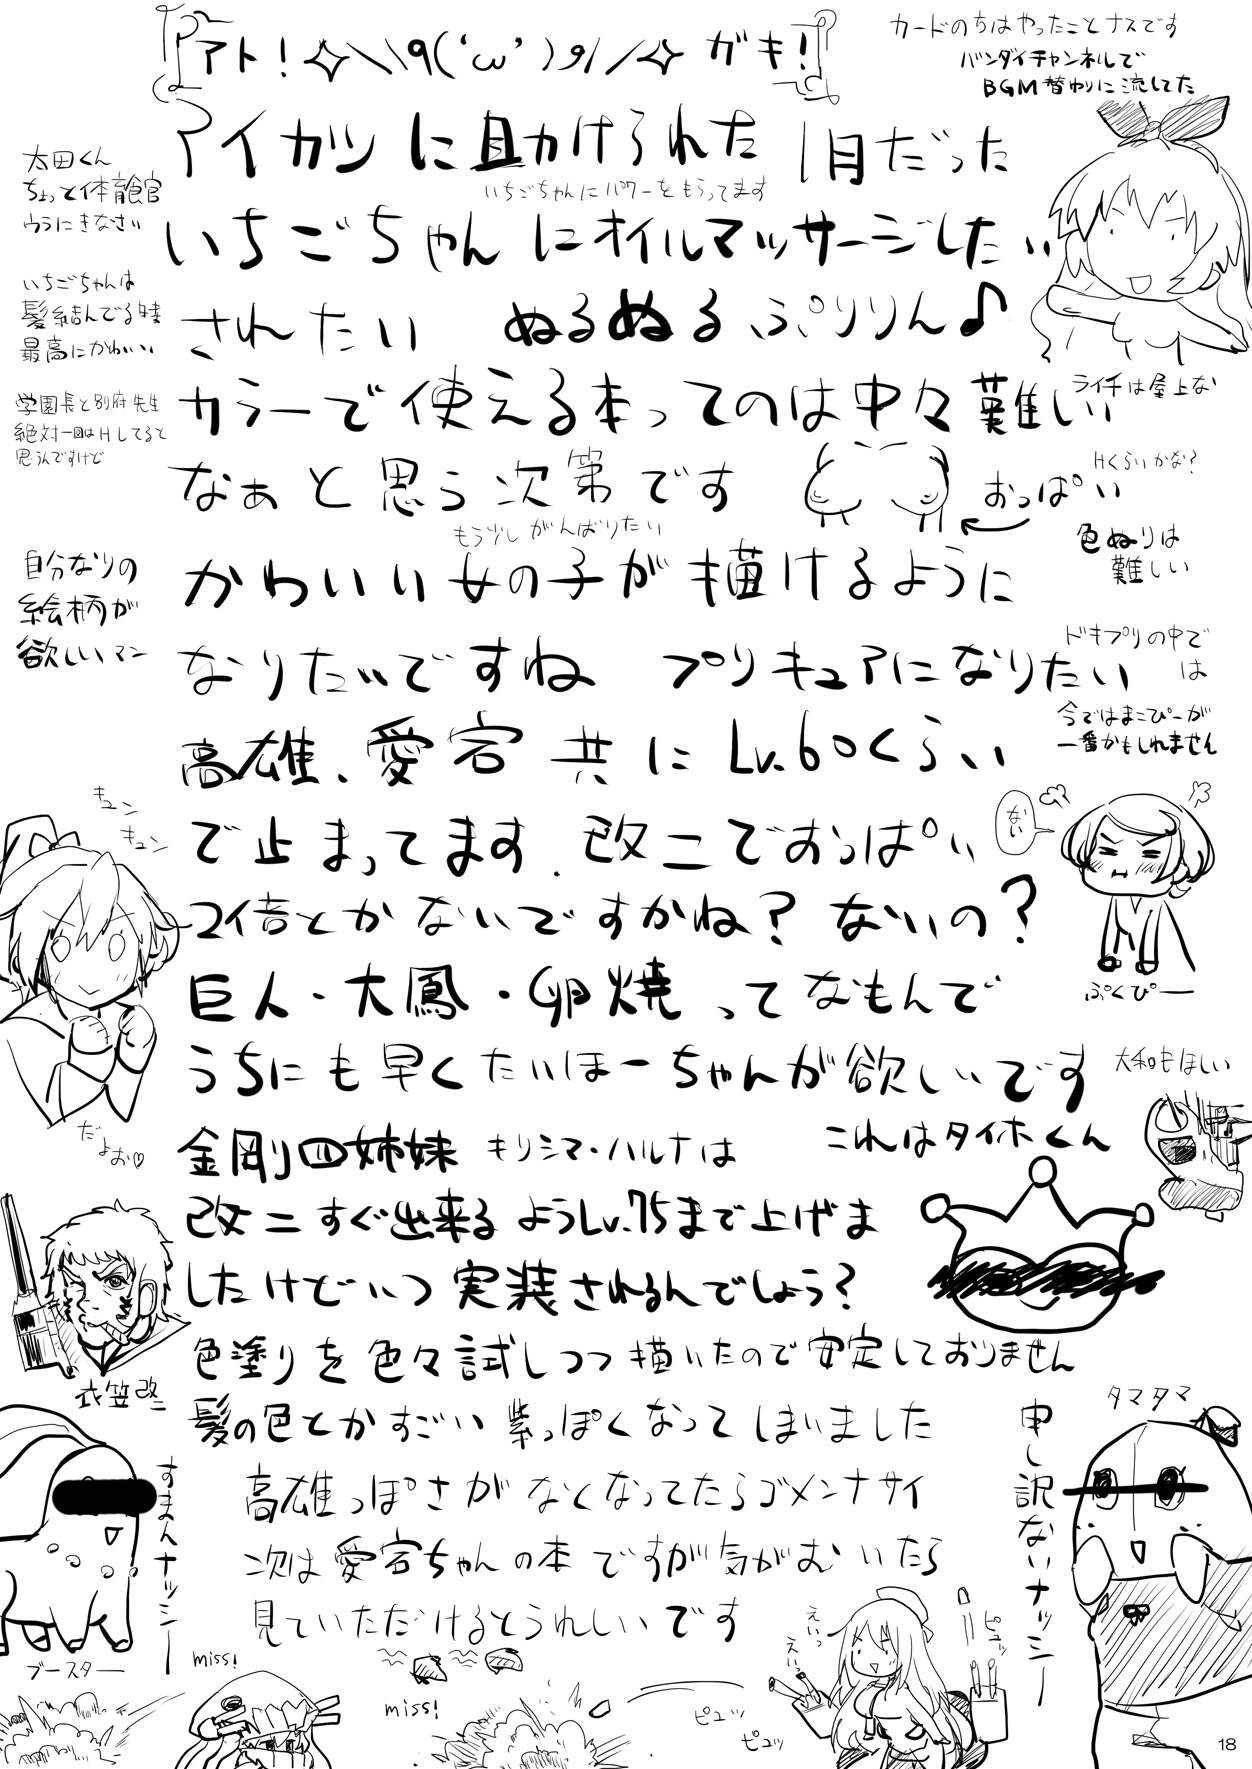 アト!✧\\٩('ω')و//✧ ガキ!
カードのちはやったことナスです
バンダイチャンネルで
BGM替わりに流してた
アイカツに助けられた1月だった
太田くん
ちょっと体育館
ウラにきなさい
いちごちゃんにパワーをもらってます
いちごちゃんにオイルマッサージしたい
いちごちゃんは
髪結んでる時
最高にかわいい
されたい ぬるぬるぷりりん♪
学園長と別府先生
絶対一回はHしてると
思うんですけど
カラーで使える本ってのは中々難しい
ライチは屋上な
なぁと思う次第です
おっぱい
Hくらいかな?
もう少しがんばりたい
色ぬりは
難しい
自分なりの
絵柄が
欲しいマン
かわいい女の子が描けるように
なりたいですね プリキュアになりたい
ドキプリの中で
は
今ではまこぴーが
一番かもしれません
高雄、愛宕共にLv.60くらい
で止まってます.改二でおっぱい
キュン
キュン
ない
2倍とかないですかね?ないの?
ぷくぴー
巨人・大鳳・卵焼ってなもんで
うちにも早くたいほーちゃんが欲しいです
大和もほしい
だよぉ♡
金剛四姉妹 キリシマ・ハルナは
これはタイホくん
改二すぐ出来るようLv.75まで上げま
したけどいつ実装されるんでしょう?
衣笠改二
色塗りを色々試しつつ描いたので安定しておりません
髪の色とかすごい紫っぽくなってしまいました
タマタマ
申し訳ないナッシー
すまんナッシー
ブースター
高雄っぽさがなくなってたらゴメンナサイ
次は愛宕ちゃんの本ですが気がむいたら
見ていただけるとうれしいです
miss!
miss!
えいっ
えいっ
ピュッ
ピュッ
ピュッ
18